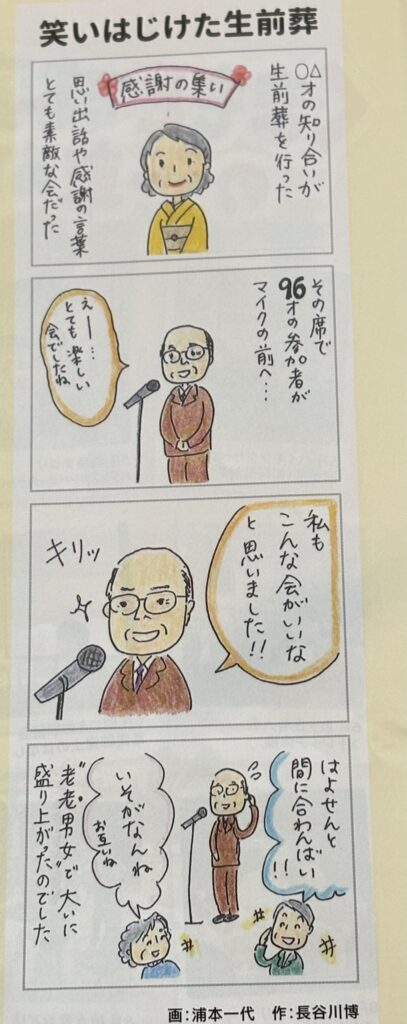 笑いはじけた生前葬
○△才の知り合いが
生前葬を行った
感謝の集い
思い出話や感謝の言葉
とても素敵な会だった
その席で
96才の参加者が
マイクの前へ…
えー…
とても楽しい
会でしたね
私も
こんな会がいいな
と思いました!!
キリッ
はよせんと
間に合わんばい!!
いそがなんね
お互いね
"老老男女"で大いに
盛り上がったのでした
画：浦本一代　作：長谷川博